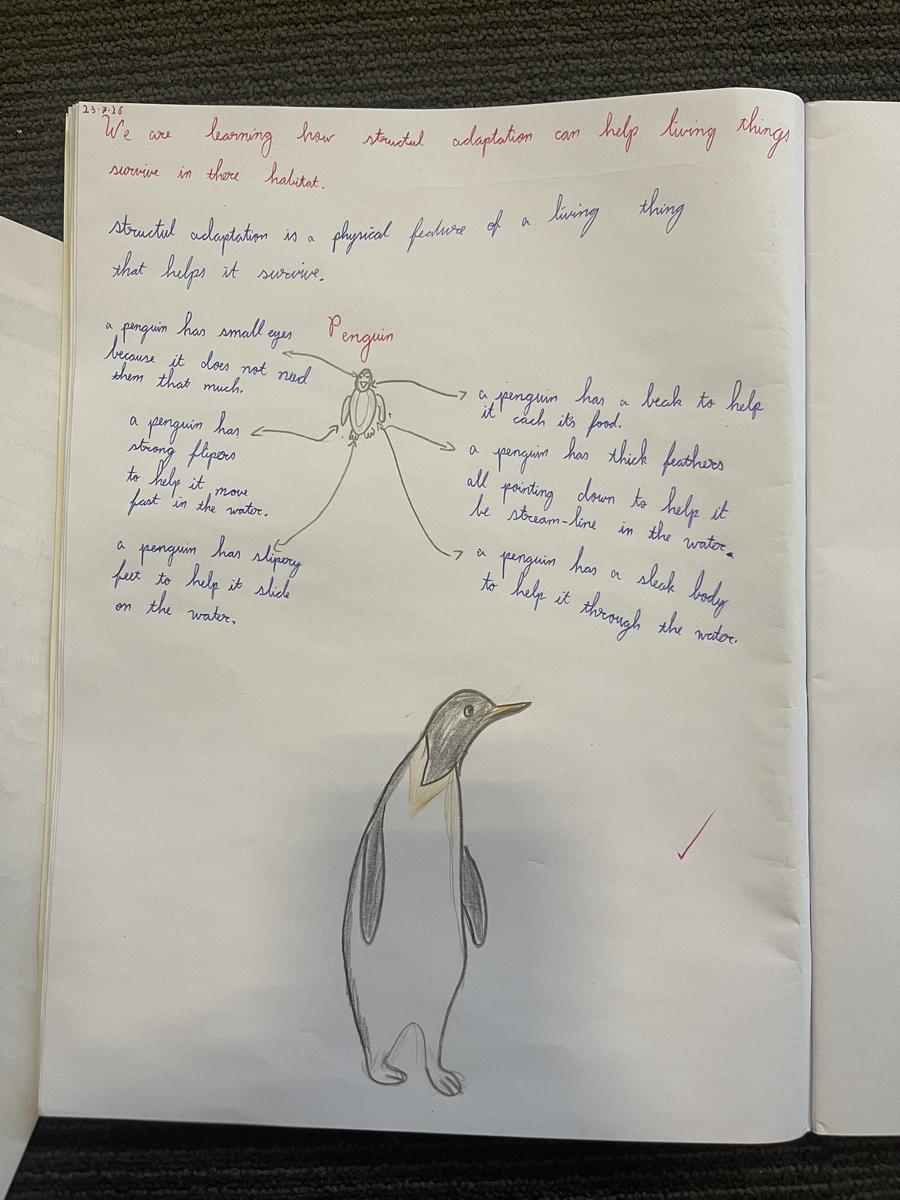 23.7.26
We are learning how structul adaptation can help living things
survive in there habitat.
structul adaptation is a physical feature of a living thing
that helps it survive.
Penguin
a penguin has small eyes
because it does not need
them that much.
a penguin has
strong flipers
to help it move
fast in the water.
a penguin has slipery
feet to help it slide
on the water.
a penguin has a beak to help
it cach it's food.
a penguin has thick feathers
all pointing down to help it
be stream-line in the water.
a penguin has a sleak body
to help it through the water.